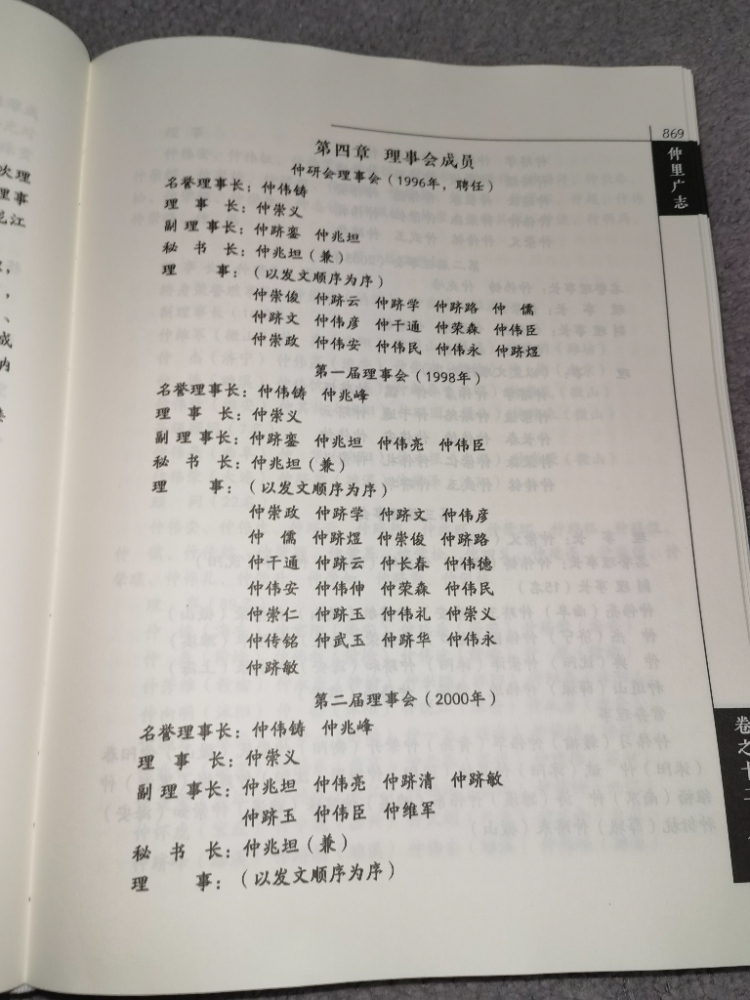 869
仲里广志
第四章 理事会成员
仲研会理事会（1996年，聘任）
名誉理事长：仲伟铸
理 事 长：仲崇义
副 理 事 长：仲跻銮 仲兆坦
秘 书 长：仲兆坦（兼）
理 事：（以发文顺序为序）
仲崇俊 仲跻云 仲跻学 仲跻路 仲 儒
仲跻文 仲伟彦 仲干通 仲荣森 仲伟臣
仲崇政 仲伟安 仲伟民 仲伟永 仲跻煜
第一届理事会（1998年）
名誉理事长：仲伟铸 仲兆峰
理 事 长：仲崇义
副 理 事 长：仲跻銮 仲兆坦 仲伟亮 仲伟臣
秘 书 长：仲兆坦（兼）
理 事：（以发文顺序为序）
仲崇政 仲跻学 仲跻文 仲伟彦
仲 儒 仲跻煜 仲崇俊 仲跻路
仲干通 仲跻云 仲长春 仲伟德
仲伟安 仲伟伸 仲荣森 仲伟民
仲崇仁 仲跻玉 仲伟礼 仲崇义
仲传铭 仲武玉 仲跻华 仲伟永
仲跻敏
第二届理事会（2000年）
名誉理事长：仲伟铸 仲兆峰
理 事 长：仲崇义
副 理 事 长：仲兆坦 仲伟亮 仲跻清 仲跻敏
仲跻玉 仲伟臣 仲维军
秘 书 长：仲兆坦（兼）
理 事：（以发文顺序为序）
卷之十二
次理
理事
江
，
、
成
纳